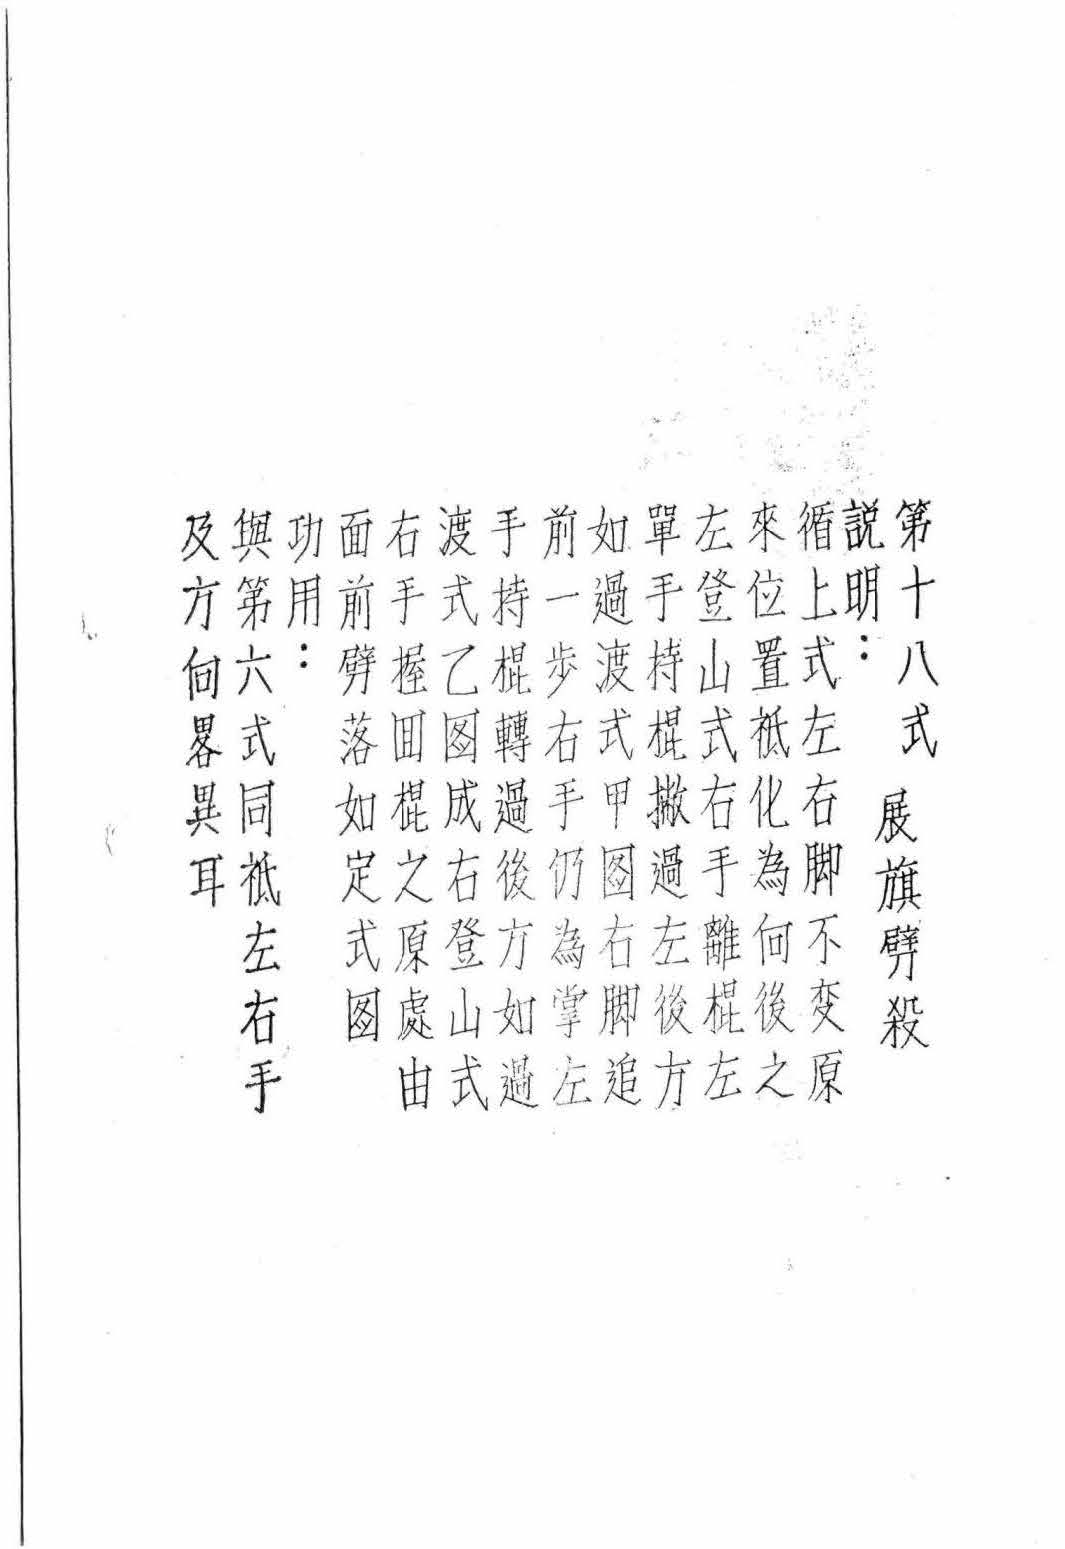 第十八式 展旗劈殺
説明：
循上式左右脚不变原
來位置祗化為向後之
左登山式右手離棍左
單手持棍撇過左後方
如過渡式甲図右脚追
前一步右手仍為掌左
手持棍轉過後方如過
渡式乙図成右登山式
右手握囬棍之原處由
面前劈落如定式図
功用：
與第六式同祗左右手
及方向畧異耳